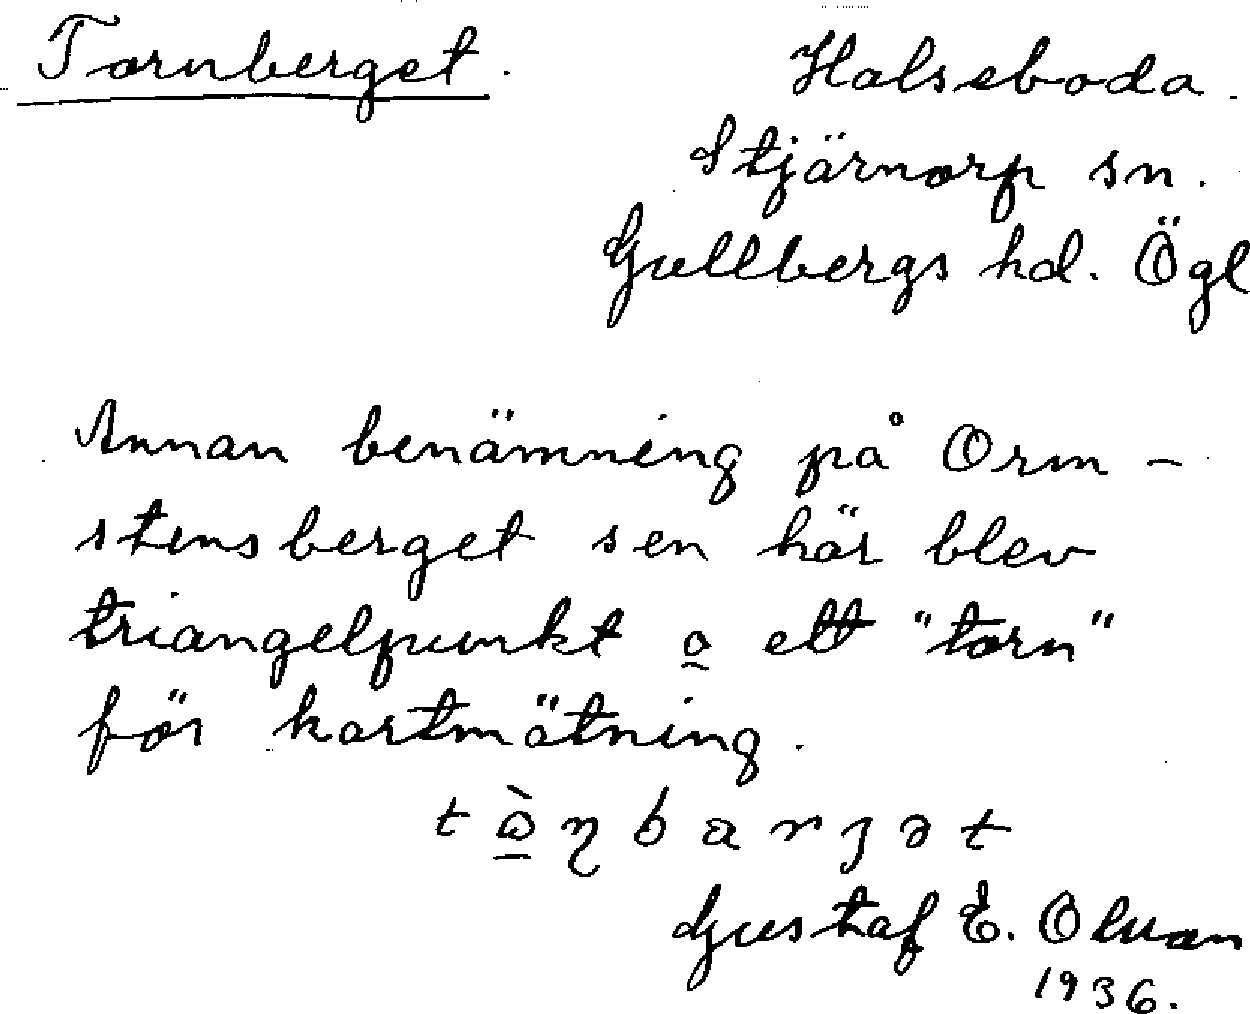 Tornberget.
Halseboda.
Stjärnorp sn.
Gullbergs hd. Ögl
Annan benämning på Orm-
stensberget sen här blev
triangelpunkt o ett "torn"
för kartmätning.
Gustaf E.
1936.